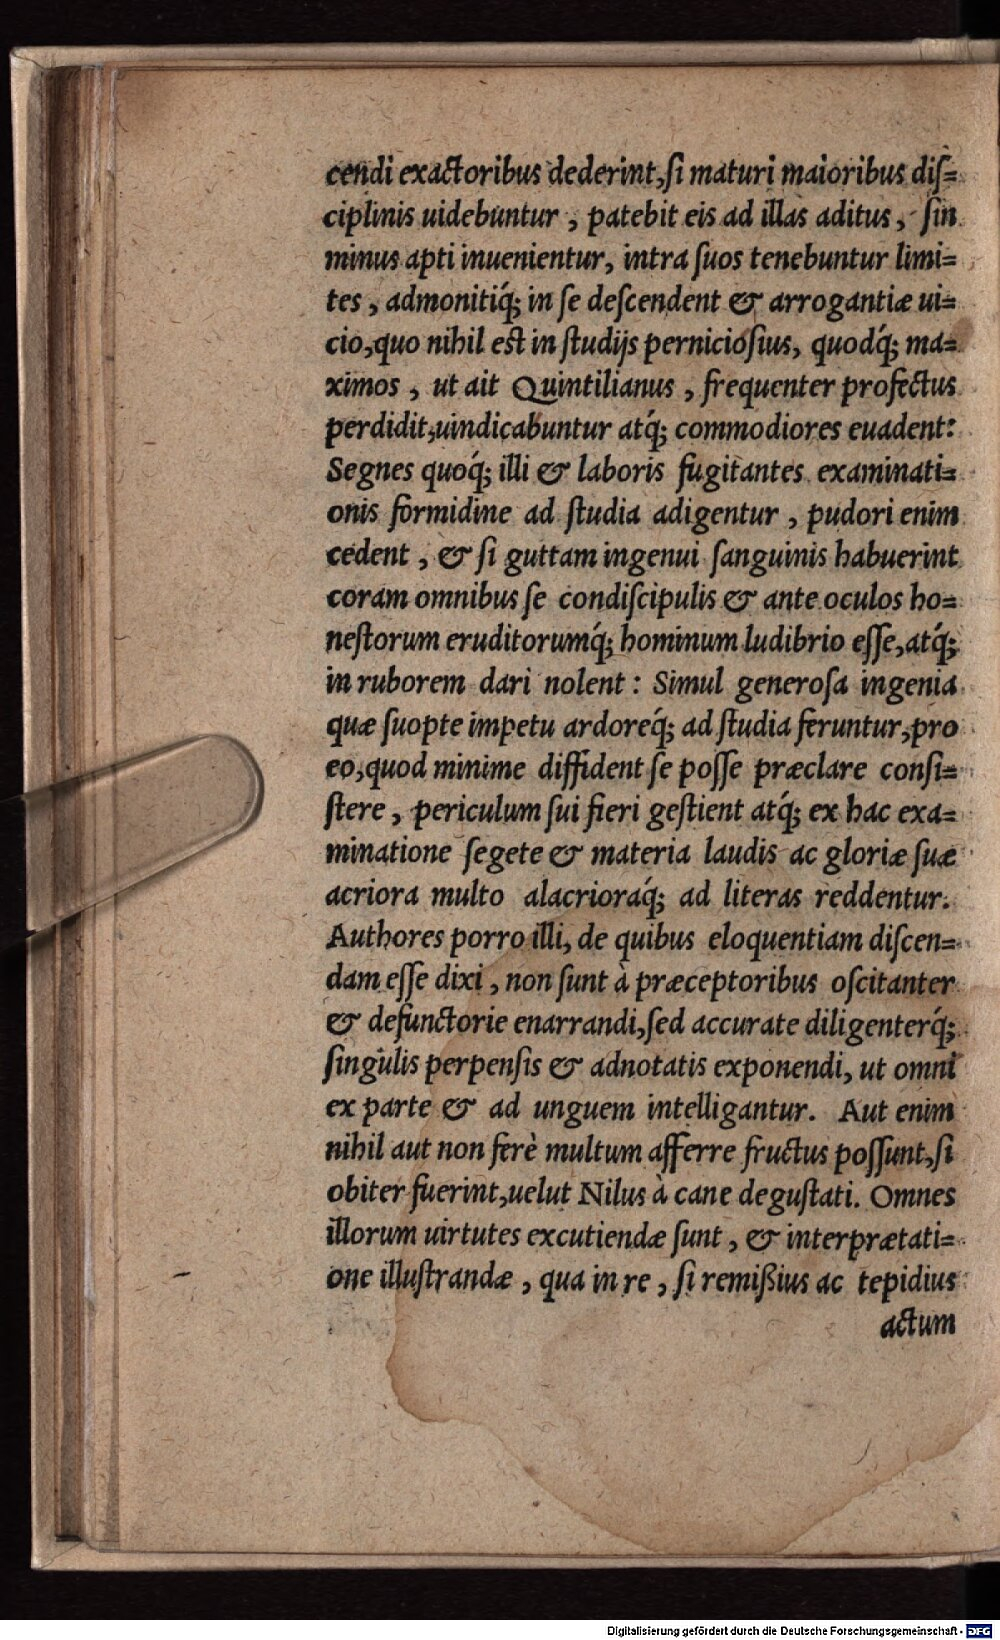 cendi exactoribus dederint,ſi maturi maioribus diſ=
ciplinis uidebuntur , patebit eis ad illas aditus, ſin
minus apti inuenientur, intra ſuos tenebuntur limi=
tes , admonitiq́; in ſe deſcendent & arrogantiæ ui=
cio,quo nihil est in ſtudijs pernicioſius, quodq́; ma=
ximos , ut ait Quintilianus , frequenter profectus
perdidit,uindicabuntur atq́; commodiores euadent:
Segnes quoq́; illi & laboris fugitantes examinati=
onis formidine ad ſtudia adigentur , pudori enim
cedent , & ſi guttam ingenui ſanguinis habuerint
coram omnibus ſe condiſcipulis & ante oculos ho=
neſtorum eruditorumq́; hominum ludibrio eſſe,atq́;
in ruborem dari nolent : Simul generoſa ingenia
quæ ſuopte impetu ardoreq́; ad ſtudia feruntur,pro
eo,quod minime diffident ſe poſſe præclare conſi=
ſtere , periculum ſui fieri geſtient atq́; ex hac exa=
minatione ſegete & materia laudis ac gloriæ ſuæ
acriora multo alacrioraq́; ad literas reddentur.
Authores porro illi, de quibus eloquentiam diſcen=
dam eſſe dixi , non ſunt à præceptoribus oſcitanter
& defunctorie enarrandi,ſed accurate diligenterq́;
ſingulis perpenſis & adnotatis exponendi, ut omni
ex parte & ad unguem intelligantur. Aut enim
nihil aut non ferè multum afferre fructus poſſunt,ſi
obiter fuerint,uelut Nilus à cane deguſtati. Omnes
illorum uirtutes excutiendæ ſunt , & interprætati=
one illuſtrandæ , qua in re , ſi remißius ac tepidius
actum
Digitalisierung gefördert durch die Deutsche Forschungsgemeinschaft - DFG